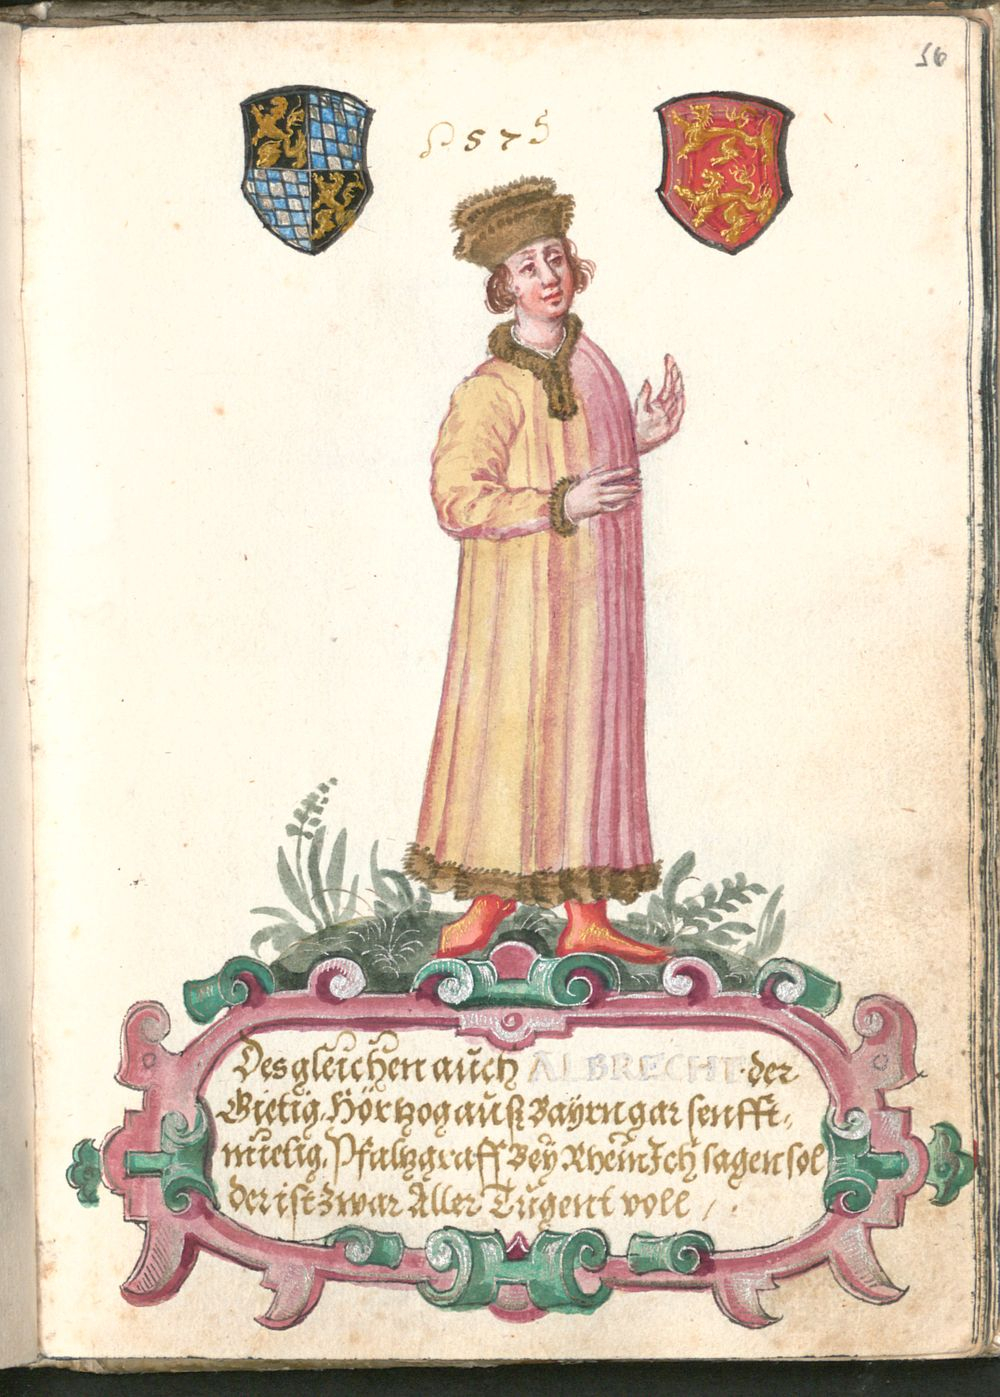 56
1575
Desgleichen auch ALBRECHT der
Gietig, Hörtzog auß Bayrn gar senfft,
mietig, Pfaltzgraff Beÿ Rhein Ich sagen sol
der ist zwar Aller Tugent voll